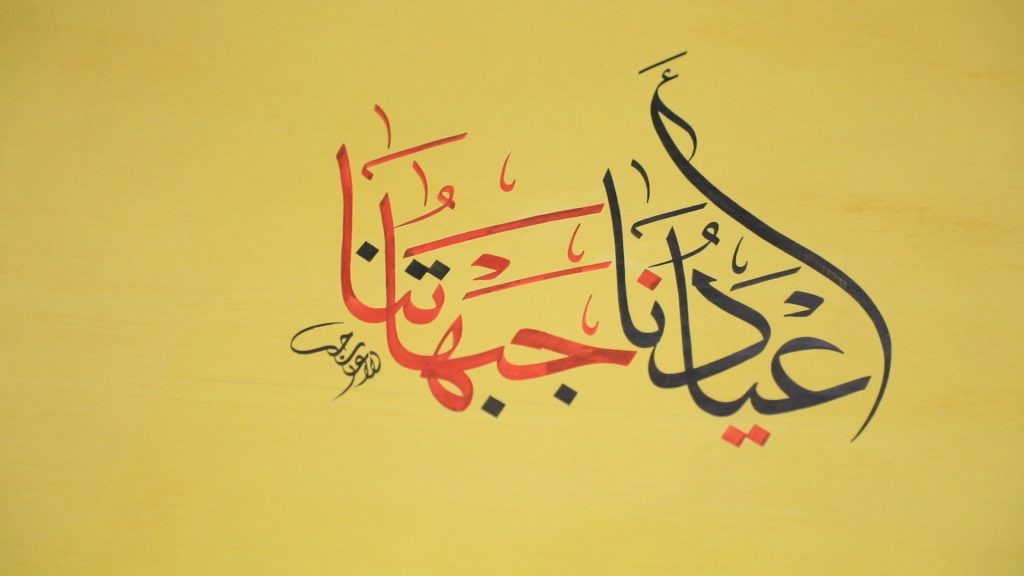 أعيادُنا جبهاتُنا